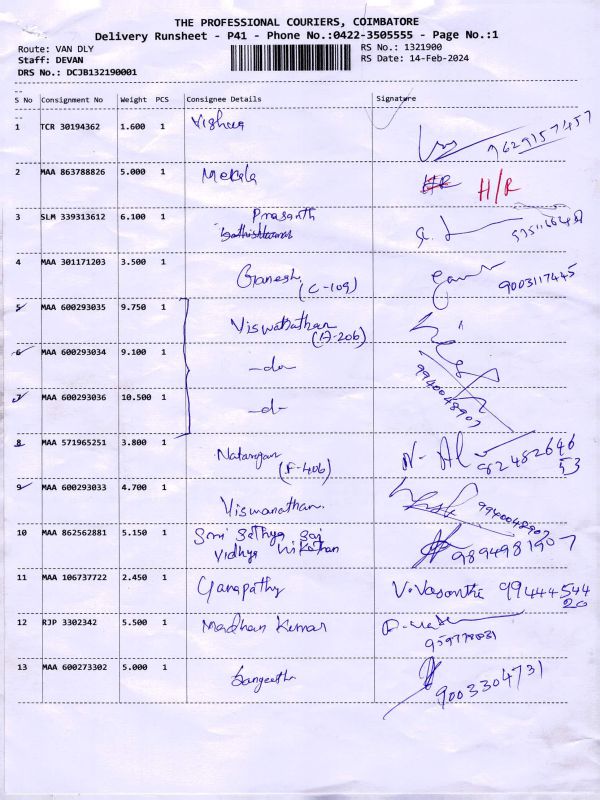 THE PROFESSIONAL COURIERS, COIMBATORE
Delivery Runsheet - P41 - Phone No.:0422-3505555 - Page No.:1
Route: VAN DLY RS No.: 1321900
Staff: DEVAN RS Date: 14-Feb-2024
DRS No.: DCJB132190001
S No Consignment No Weight PCS Consignee Details Signature
1 TCR 30194362 1.600 1 Vishwa 9629157457
2 MAA 863788826 5.000 1 Mekala H/R
3 SLM 339313612 6.100 1 Prasanth
4 MAA 301171203 3.500 1 Ganesh 9003117445
(C-109)
5 MAA 600293035 9.750 1 Viswanathan
(A-206)
6 MAA 600293034 9.100 1 -do-
7 MAA 600293036 10.500 1 -d- 9940048907
8 MAA 571965251 3.800 1 Natarajan 82482646
(F-406) 53
9 MAA 600293033 4.700 1 Viswanathan. 9940048907
10 MAA 862562881 5.150 1 Smi Sathya Sai
Vidhya 9894981907
11 MAA 106737722 2.450 1 Ganapathy V.Vasantha 99444544
20
12 RJP 3302342 5.500 1 Madhan Kumar
13 MAA 600273302 5.000 1 Sangeetha 9003304731